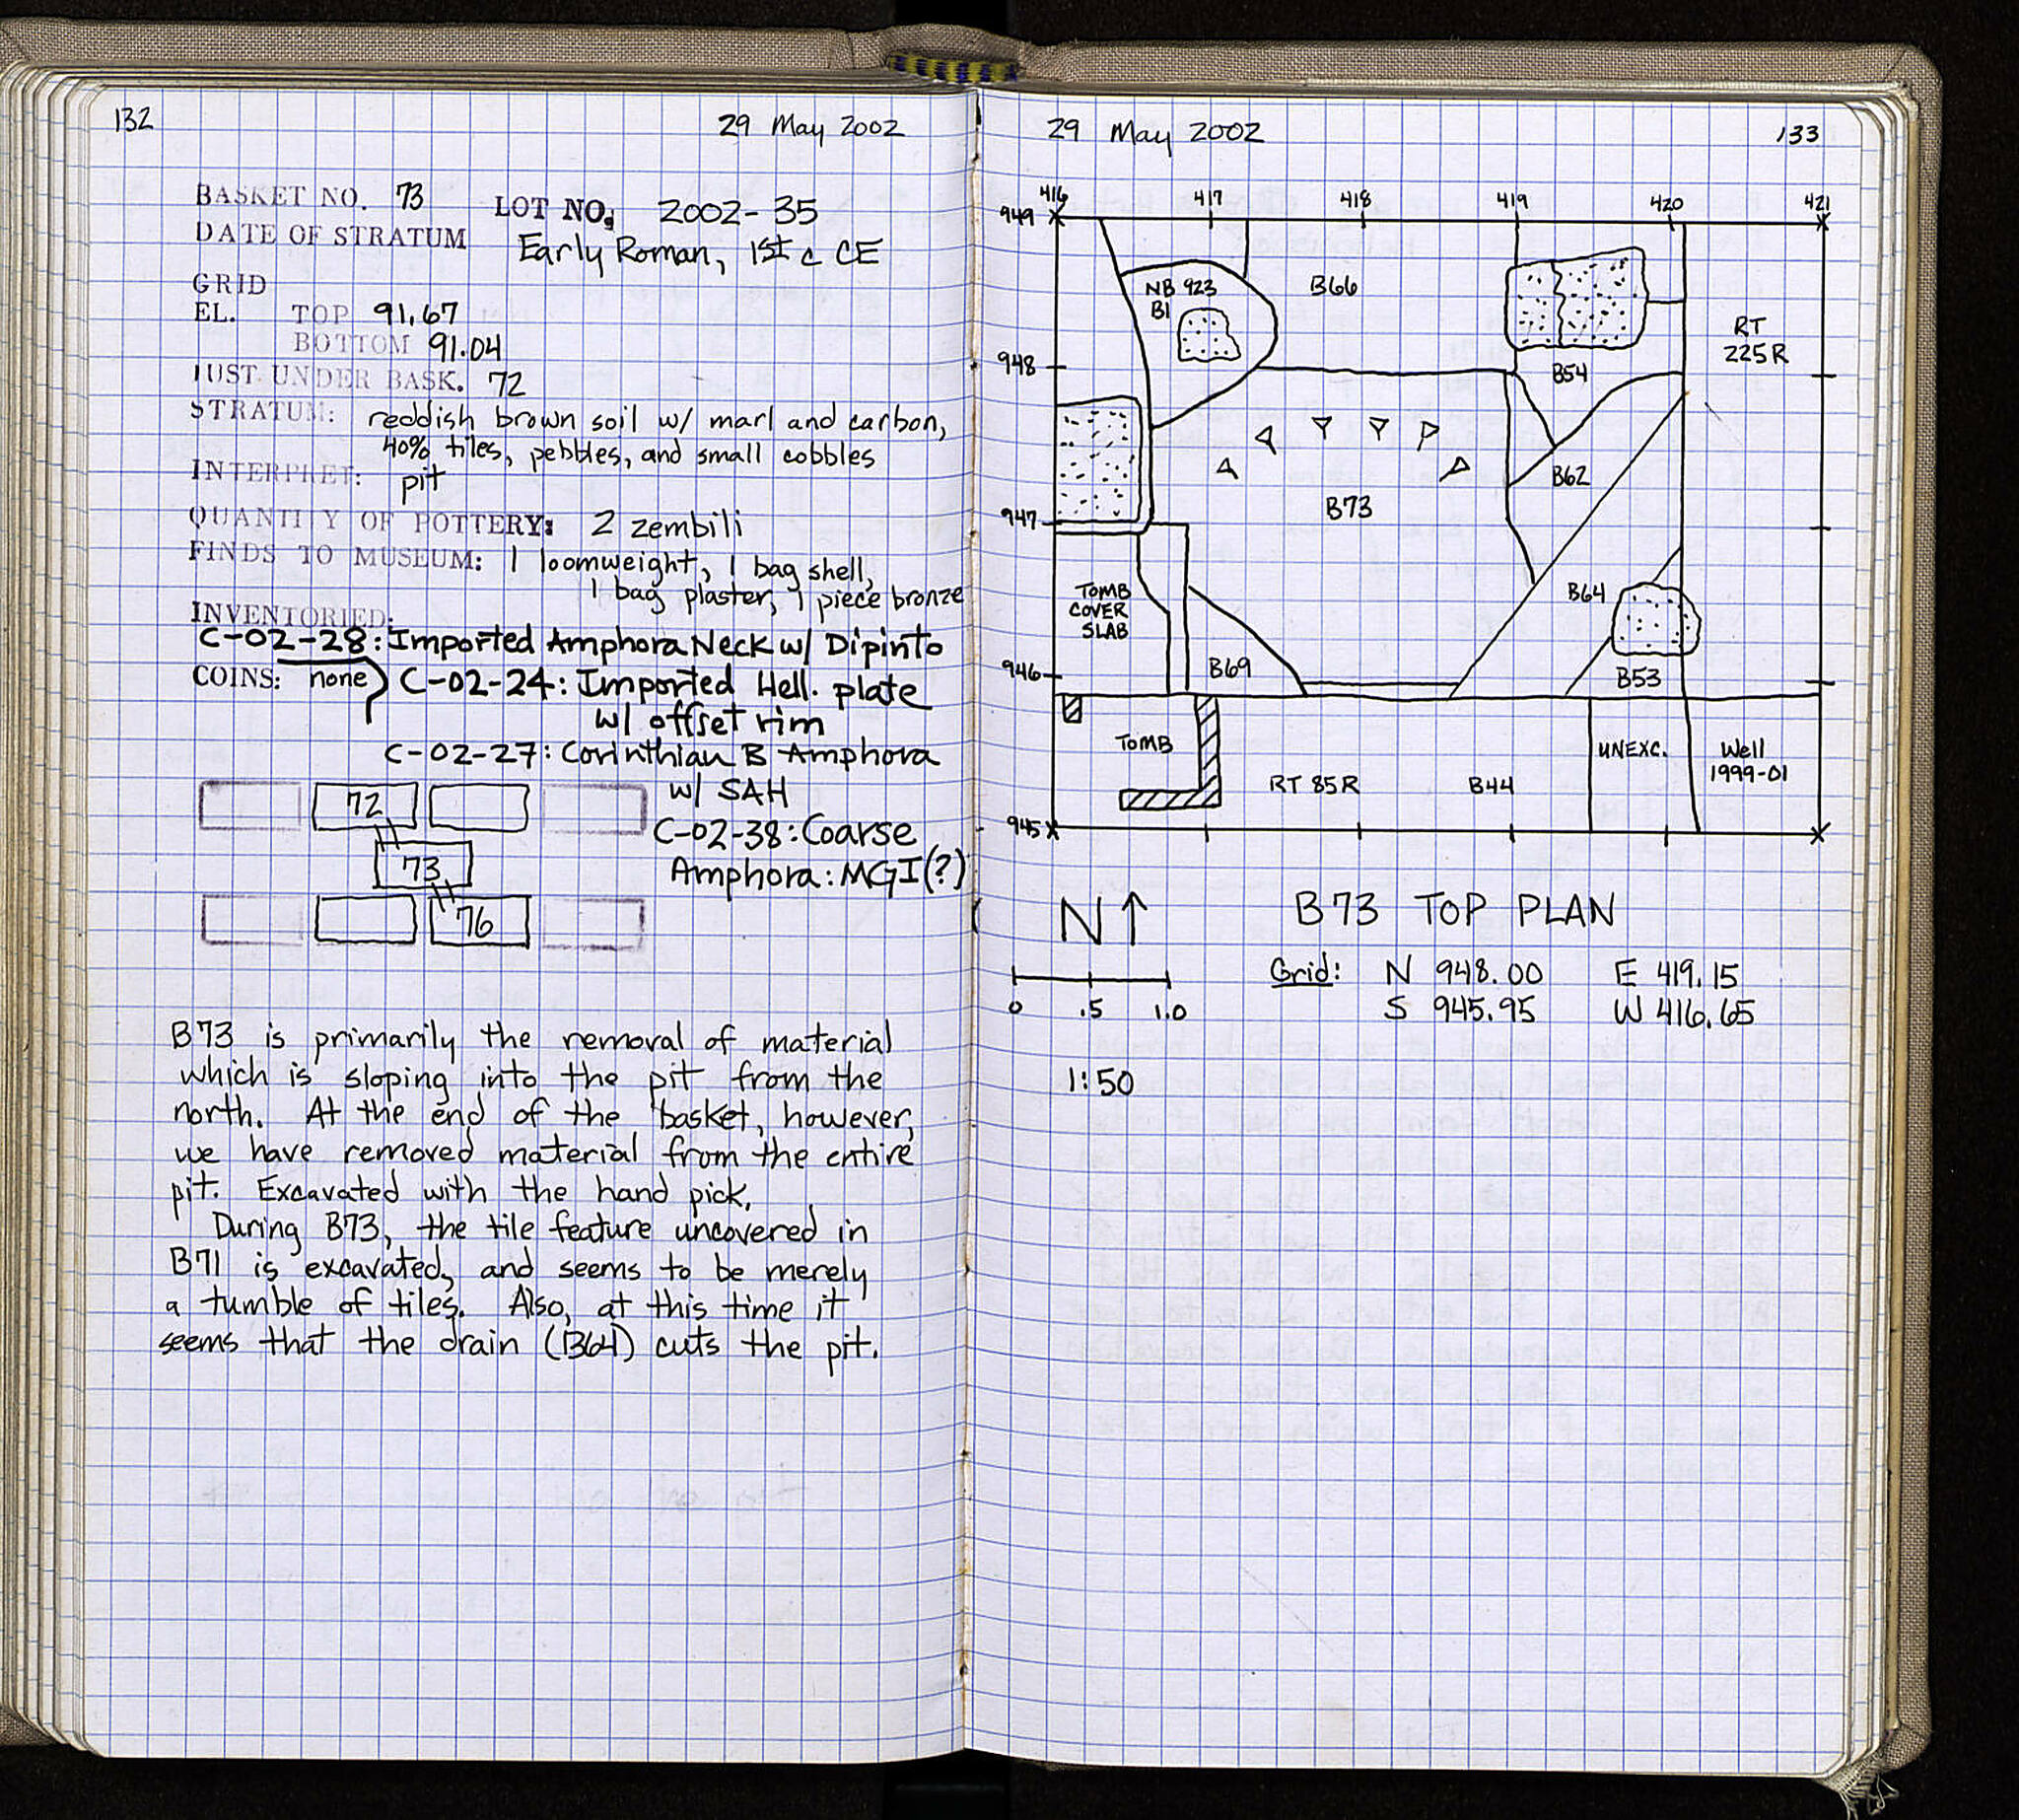 132
29 May 2002
BASKET NO. 73
LOT NO. 2002-35
DATE OF STRATUM
Early Roman, 1st c CE
GRID
EL. TOP 91.67
BOTTOM 91.04
JUST UNDER BASK. 72
STRATUM: reddish brown soil w/ marl and carbon,
40% tiles, pebbles, and small cobbles
INTERPRET: pit
QUANTITY OF POTTERY: 2 zembili
FINDS TO MUSEUM: 1 loomweight, 1 bag shell,
1 bag plaster, 1 piece bronze
INVENTORIED:
C-02-28: Imported Amphora Neck w/ Dipinto
COINS: none
C-02-24: Imported Hell. plate
w/ offset rim
C-02-27: Corinthian B Amphora
w/ SAH
C-02-38: Coarse
Amphora: MGI(?)
72
73
76
B73 is primarily the removal of material
which is sloping into the pit from the
north. At the end of the basket, however,
we have removed material from the entire
pit. Excavated with the hand pick.
During B73, the tile feature uncovered in
B71 is excavated, and seems to be merely
a tumble of tiles. Also, at this time it
seems that the drain (B64) cuts the pit.
29 May 2002
133
416 417 418 419 420 421
949
NB 923
B1
B66
RT
225R
948
B54
B62
B73
947
TOMB
COVER
SLAB
B64
B69
946
B53
TOMB
UNEXC.
Well
1999-01
RT 85R
B44
945
N
B73 TOP PLAN
Grid: N 948.00 E 419.15
S 945.95 W 416.65
0 .5 1.0
1:50